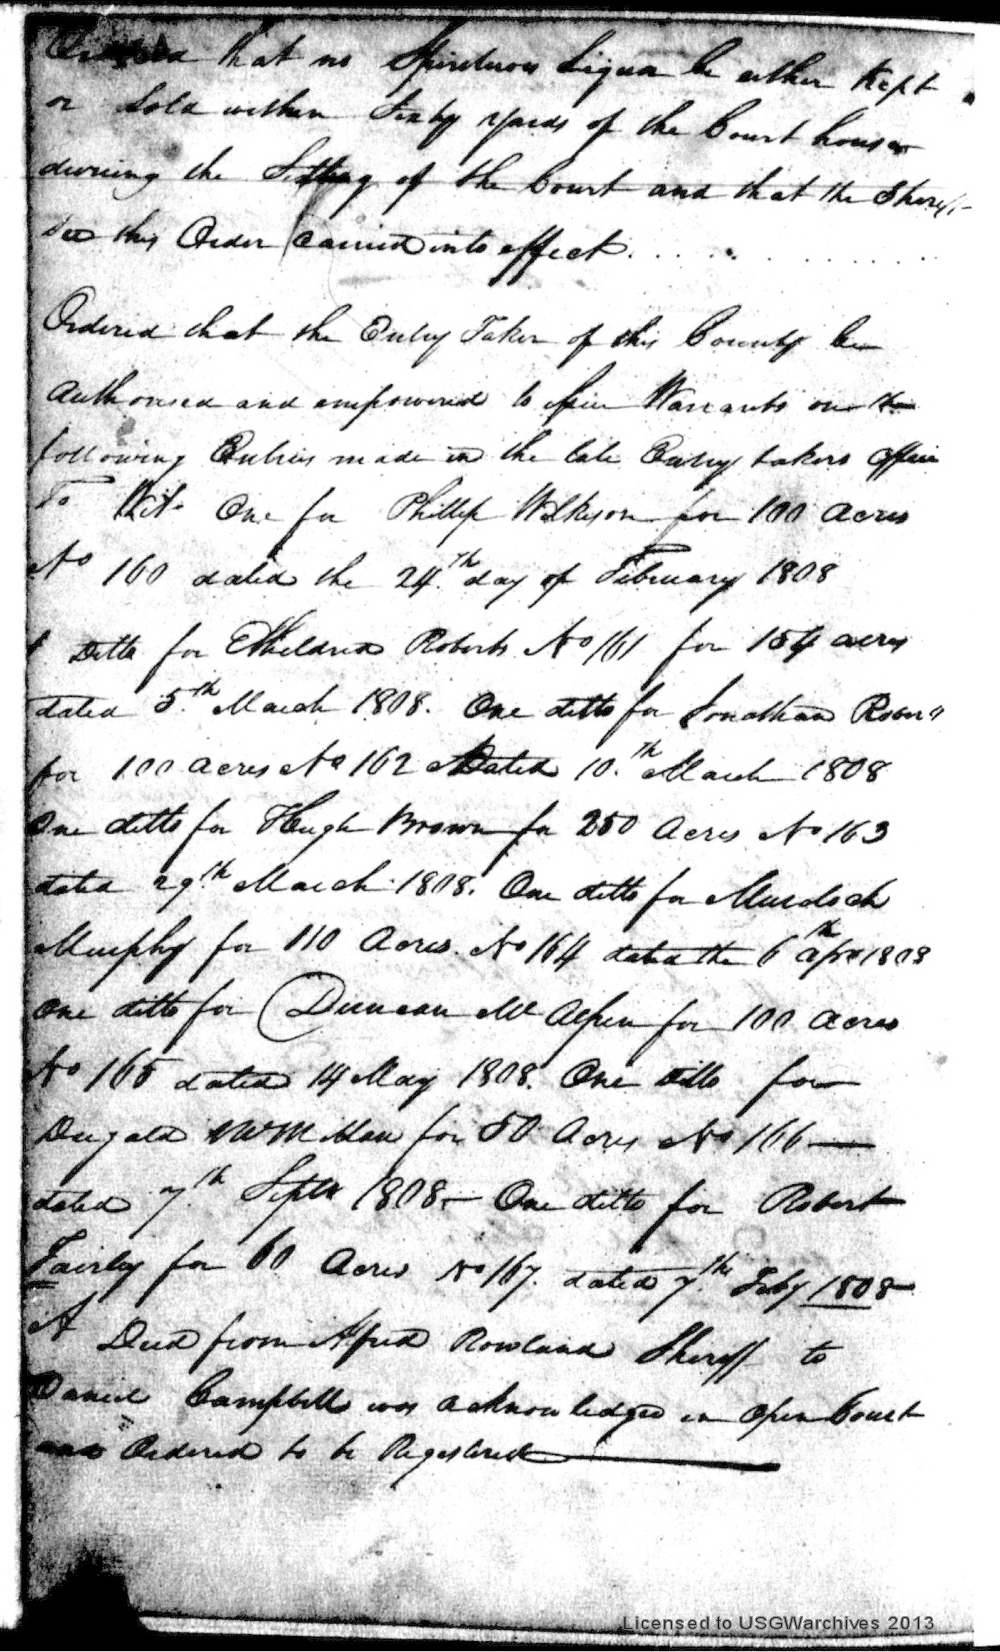 Ordered that no Spirituous Liquor be either Kept
or Sold within Sixty yards of the Court house
during the Setting of the Court and that the Sheriff
See this Order Carried into effect . . . . . . . . . .
Ordered that the Entry Taker of this County be
Authorised and empowered to issue Warrants on the
following Entries made in the late Entry takers office
To Wit. One for Phillip Wilkison for 100 acres
No 160 dated the 24th day of February 1808
1 Ditto for Etheldred Roberts No 161 for 154 acres
dated 5th March 1808. One ditto for Jonathan
for 100 acres No 162 Dated 10th March 1808
One ditto for Hugh Brown for 250 Acres No 163
dated 29th March 1808. One ditto for Murdoch
Murphy for 110 Acres. No 164 dated the 6th Apr 1808
One ditto for Duncan Mc Alpin for 100 acres
No 165 dated 14 May 1808. One ditto for
Dugald McMillan for 50 Acres No 166
dated 7th Septr 1808 – One ditto for Robert
Fairly for 60 Acres No 167. dated 7th Feby 1808
A Deed from Alfred Rowland Sheriff to
Daniel Campbell was acknowledged in Open Court
and Ordered to be Registered
Licensed to USGWarchives 2013